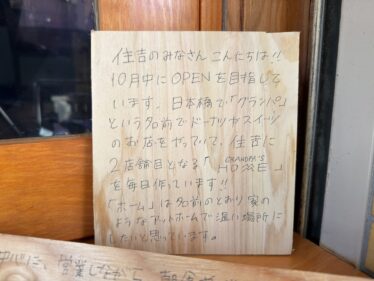 住吉のみなさんこんにちは!!
10月中にOPENを目指して
います。日本橋で「グランパ」
という名前でドーナツやスイーツ
のお店をやっていて、住吉に
2店舗目となる「GRANDPA'S HOME」
を毎日作っています!!
「ホーム」は名前のとおり家の
ようなアットホームで温い場所に
したいと思っています。
中心に、営業しながら